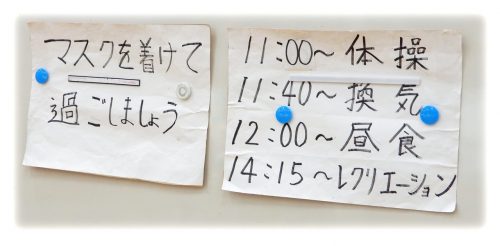 マスクを着けて
過ごしましょう
11:00~体操
11:40~換気
12:00~昼食
14:15~レクリエーション